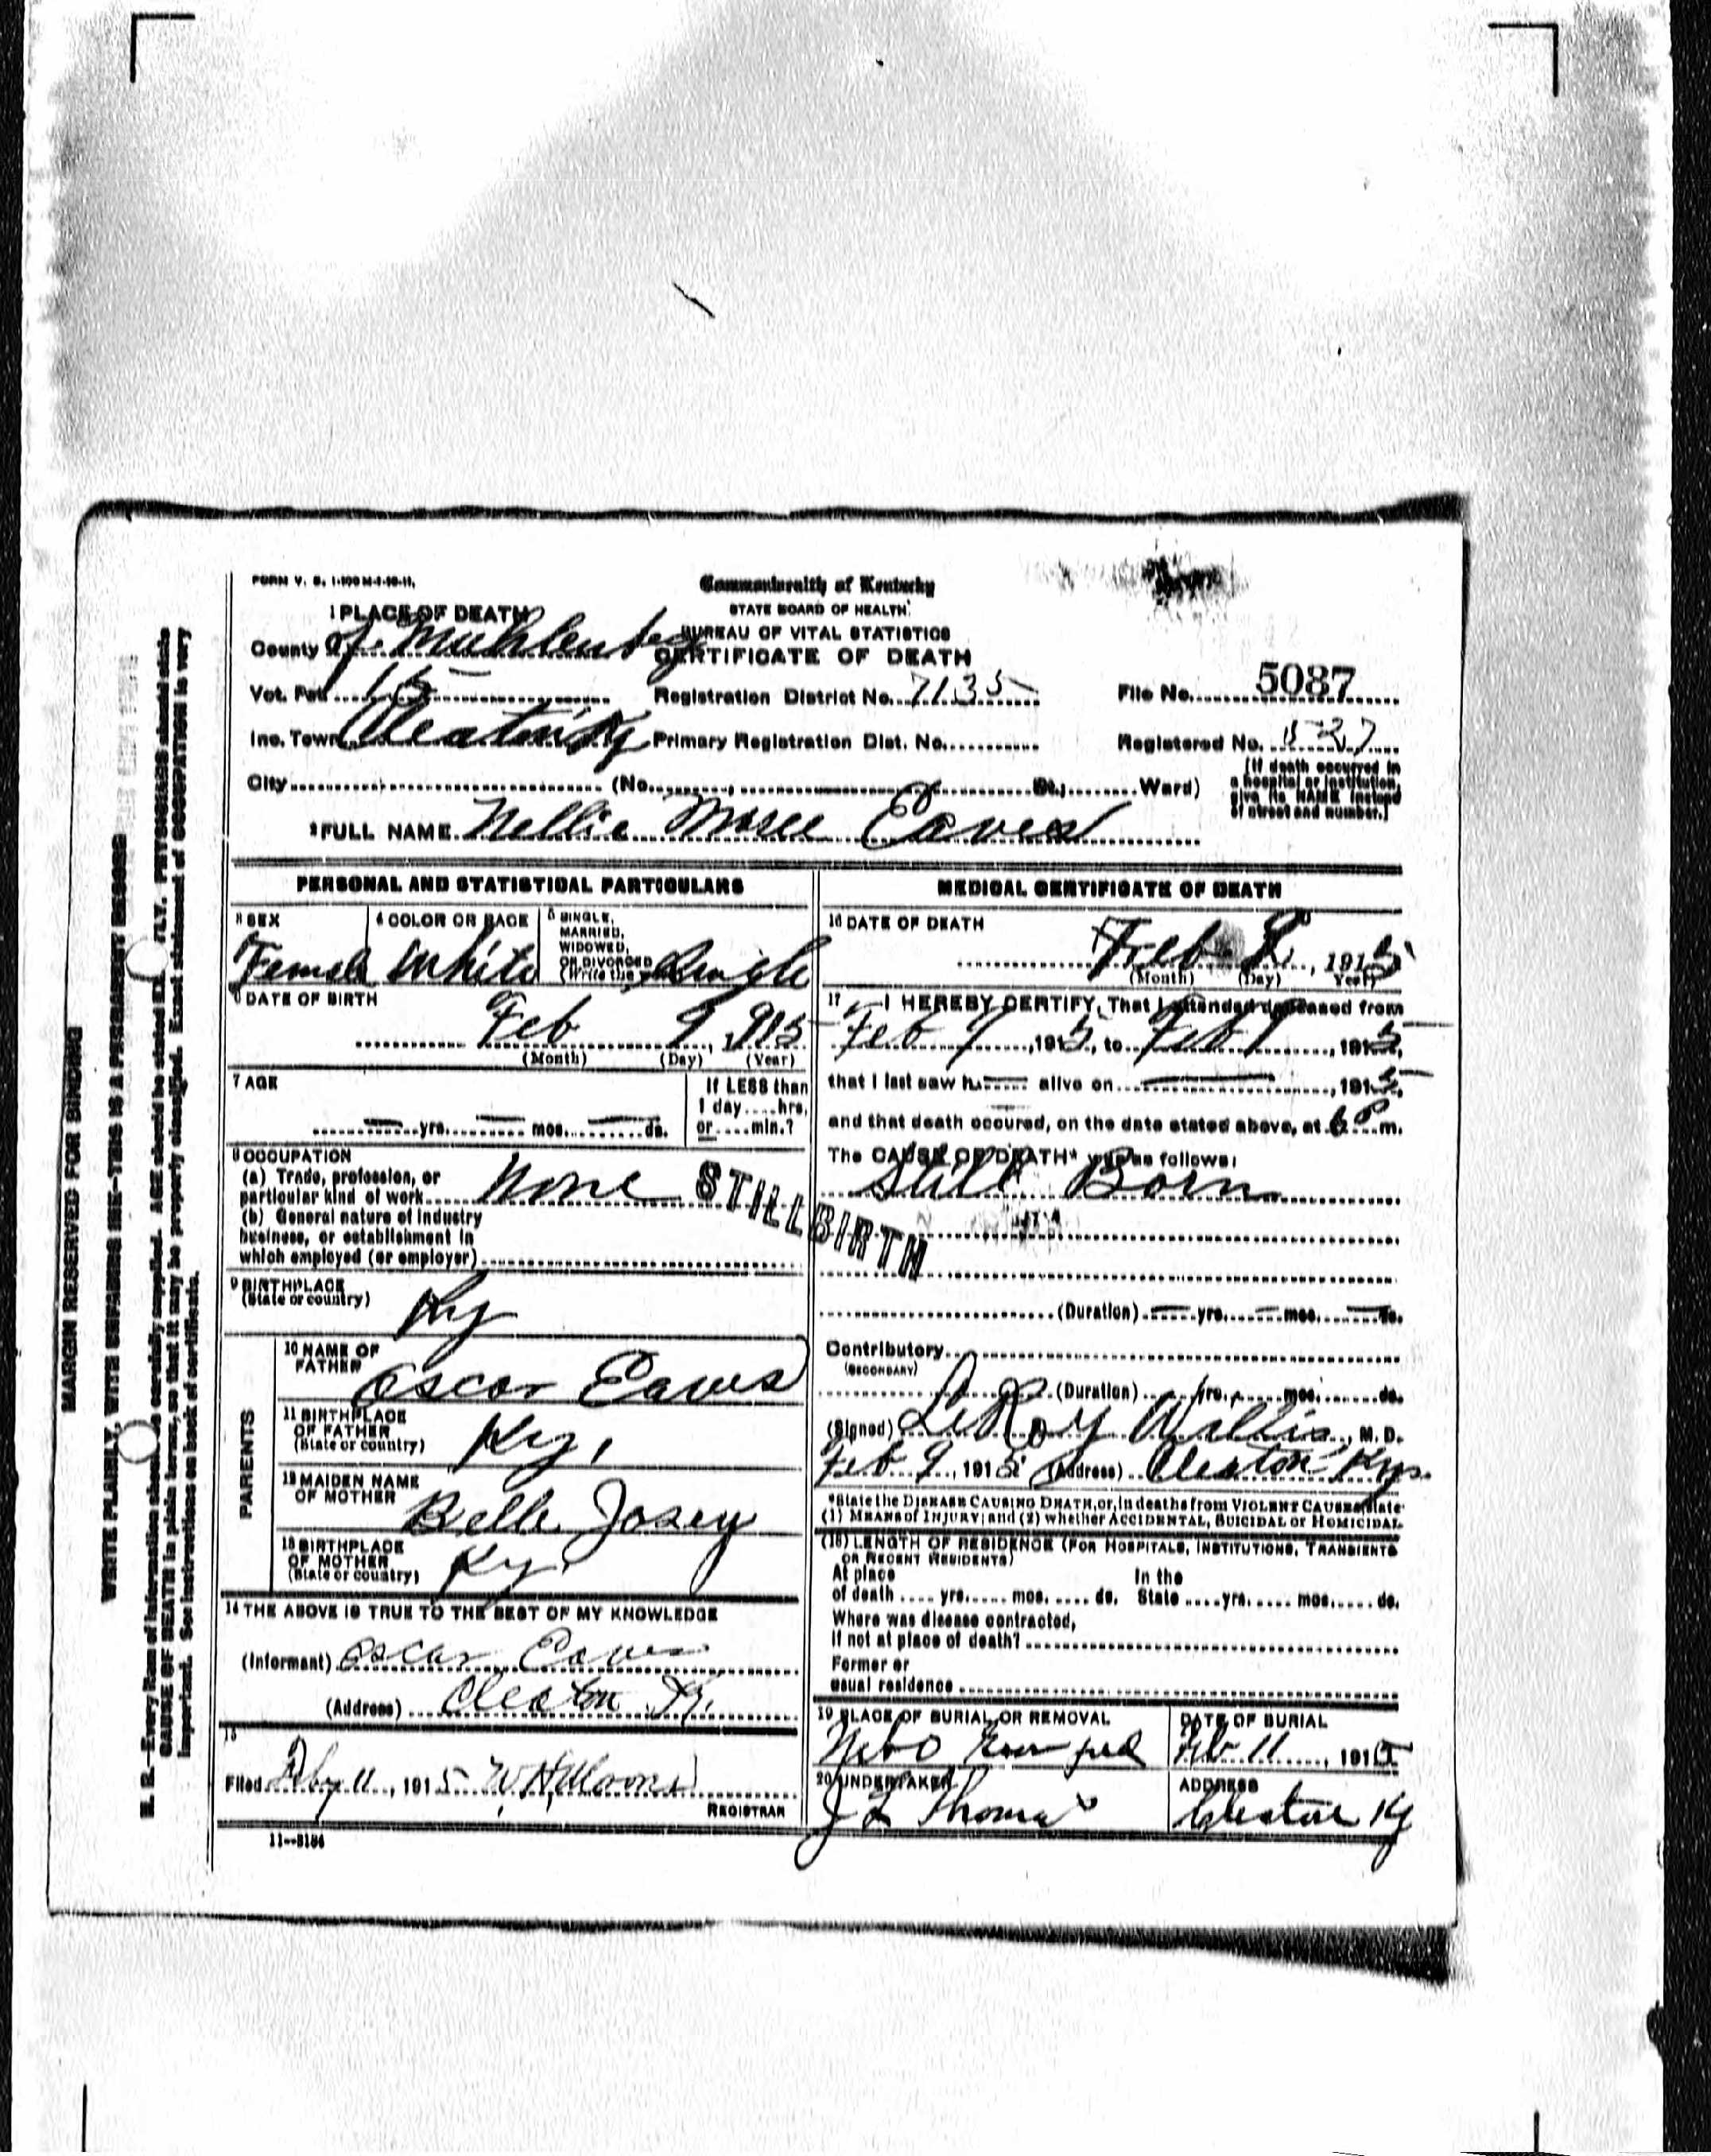 FORM V. S. 1-100 M-1-10-11.
Commonwealth of Kentucky
STATE BOARD OF HEALTH.
BUREAU OF VITAL STATISTICS
CERTIFICATE OF DEATH
1 PLACE OF DEATH
County of Muhlenberg
Vot. Pct. 15
Registration District No. 7135
File No. 5087
Inc. Town Cleaton Ky
Primary Registration Dist. No.
Registered No.
City (No. St.; Ward)
(If death occurred in a hospital or institution, give its NAME instead of street and number.)
2 FULL NAME Nellie Eaves
PERSONAL AND STATISTICAL PARTICULARS
3 SEX
Female
4 COLOR OR RACE
White
5 SINGLE, MARRIED, WIDOWED, OR DIVORCED (Write the
Single
6 DATE OF BIRTH
Feb 9, 1915
(Month) (Day) (Year)
7 AGE
yrs. mos. ds.
If LESS than 1 day....hrs, or....min.?
8 OCCUPATION
(a) Trade, profession, or particular kind of work None
(b) General nature of industry business, or establishment in which employed (or employer)
STILLBIRTH
9 BIRTHPLACE
(State or country) Ky
PARENTS
10 NAME OF FATHER
Oscar Eaves
11 BIRTHPLACE OF FATHER
(State or country) Ky.
12 MAIDEN NAME OF MOTHER
Belle Josey
13 BIRTHPLACE OF MOTHER
(State or country) Ky.
14 THE ABOVE IS TRUE TO THE BEST OF MY KNOWLEDGE
(Informant) Oscar Eaves
(Address) Cleaton Ky.
15
Filed 11, 1915
REGISTRAR
11--3184
MEDICAL CERTIFICATE OF DEATH
16 DATE OF DEATH
Feb , 1915
(Month) (Day) Year)
17 I HEREBY CERTIFY, That I attended deceased from
Feb 9, 1915, to Feb 9, 1915,
that I last saw h alive on , 1915,
and that death occured, on the date stated above, at 6 P m.
The CAUSE OF DEATH* was as follows:
Still Born
(Duration) yrs. mos. ds.
Contributory
(SECONDARY)
(Duration) yrs. mos. ds.
(Signed) LeRoy Wallis, M. D.
Feb. 9, 1915 (Address) Cleaton Ky.
*State the DISEASE CAUSING DEATH, or, in deaths from VIOLENT CAUSES, state
(1) MEANS of INJURY; and (2) whether ACCIDENTAL, SUICIDAL or HOMICIDAL.
(18) LENGTH OF RESIDENCE (FOR HOSPITALS, INSTITUTIONS, TRANSIENTS
OR RECENT RESIDENTS)
At place of death .... yrs. .... mos. .... ds. In the State .... yrs. .... mos. .... ds.
Where was disease contracted,
If not at place of death?
Former or
usual residence
19 PLACE OF BURIAL OR REMOVAL
Nebo
DATE OF BURIAL
Feb 11, 1915
20 UNDERTAKER
J L Thomas
ADDRESS
Cleaton Ky
MARGIN RESERVED FOR BINDING
WRITE PLAINLY, WITH UNFADING INK--THIS IS A PERMANENT RECORD
N. B.--Every item of information should be carefully supplied. AGE should be stated EXACTLY. PHYSICIANS should state
CAUSE OF DEATH in plain terms, so that it may be properly classified. Exact statement of OCCUPATION is very
important. See instructions on back of certificate.